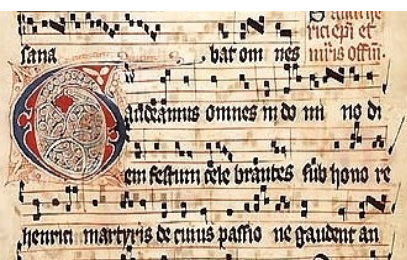 sana bat om nes
rici epi et
mris offm
Gaudeamus omnes in do mi no di
em festum cele brantes sub hono re
henrici martyris de cuius passio ne gaudent an